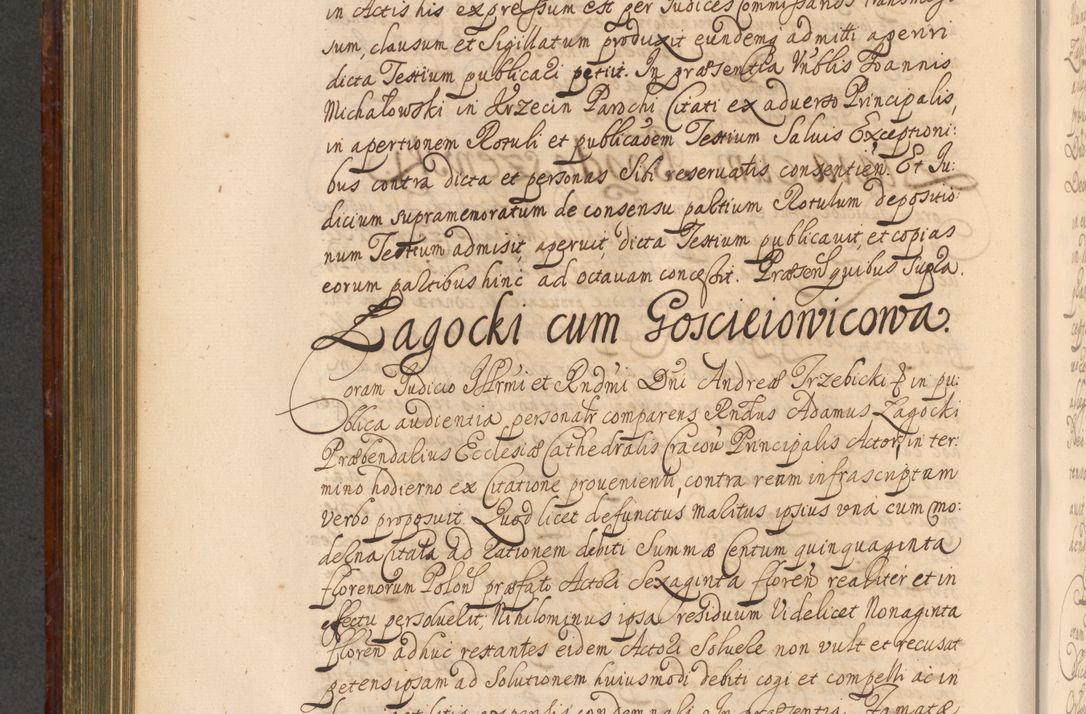 in Actis his expressum est per Judices Commissarios transmis-
sum, clausum et Sigillatum produxit eundemq admitti aperiri
dicta Testium publicari petiit. In præsentia Vnblis Joannis
Michałowski in Krzecin Parochi Citati ex adverso Principalis,
in apertionem Rotuli et publicaōem Testium Saluis Exceptioni:
bus contra dicta et personas Sibi reservatis consentien. Et Ju:
dicium supramemoratum de consensu partium Rotulum depositio:
num Testium admisit, aperuit, dicta Testium publicauit, et copias
eorum partibus hinc ad octauam concessit. Præsen quibus Supra.
Zagocki cum Goscieiowicowa.
Coram Judicio Illrmi et Rndmi Dni Andreæ Trzebicki in pu:
blica audientia personalr comparens Rndus Adamus Zagocki
Præbendarius Ecclesiæ Cathedralis Cracou Principalis Actor, in ter:
mino hodierno ex Citatione prouenienti, contra ream infrascriptam
verbo proposuit. Quod licet defunctus Maritus ipsius vna cum mo:
derna Citata ad rationem debiti Summæ Centum quinquaginta
florenorum Polon præfato Actori Sexaginta floren realiter et in
effectu persoluerit, Nihilominus ipsa residuum Videlicet Nonaginta
floren adhuc restantes eidem Actori Soluere non vult et recusat
petens ipsam ad Solutionem huiusmodi debiti cogi et compelli ac in
litis expensis condemnari. In præsentia Famatæ